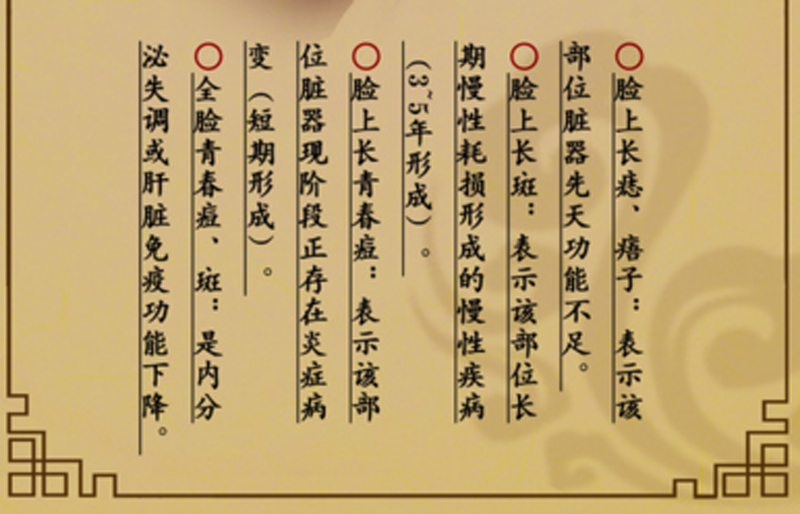 〇脸上长痣、痦子：表示该
部位脏器先天功能不足。
〇脸上长斑：表示该部位长
期慢性耗损形成的慢性疾病
（3~5年形成）。
〇脸上长青春痘：表示该部
位脏器现阶段正存在炎症病
变（短期形成）。
〇全脸青春痘、斑：是内分
泌失调或肝脏免疫功能下降。